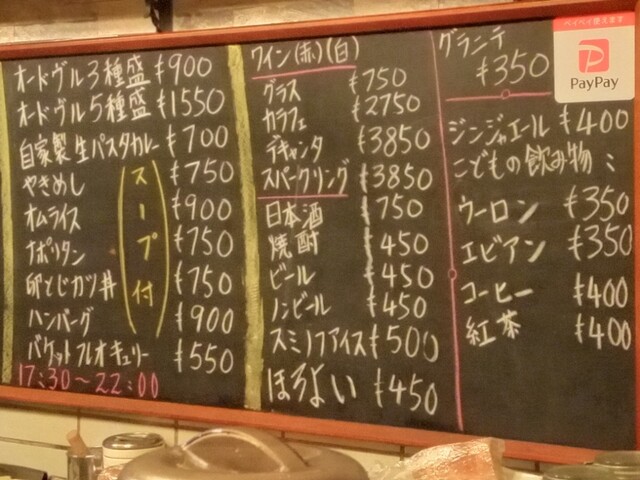 オードヴル3種盛 ¥900
オドヴル5種盛 ¥1550
自家製生パスタカレー ¥700
やきめし ¥750
オムライス ¥900
ナポリタン ¥750
卵とじカツ丼 ¥750
ハンバーグ ¥900
スープ付
バケットフレオキュリー ¥550
17:30～22:00
ワイン(赤)(白)
グラス ¥750
カラフェ ¥2750
デキャンタ ¥3850
スパークリング ¥3850
日本酒 ¥750
焼酎 ¥450
ビール ¥450
ノンビール ¥450
スミノフアイス ¥500
ほろよい ¥450
グラニテ
¥350
ジンジャエール ¥400
こどもの飲み物:
ウーロン ¥350
エビアン ¥350
コーヒー ¥400
紅茶 ¥400
ペイペイ使えます
PayPay